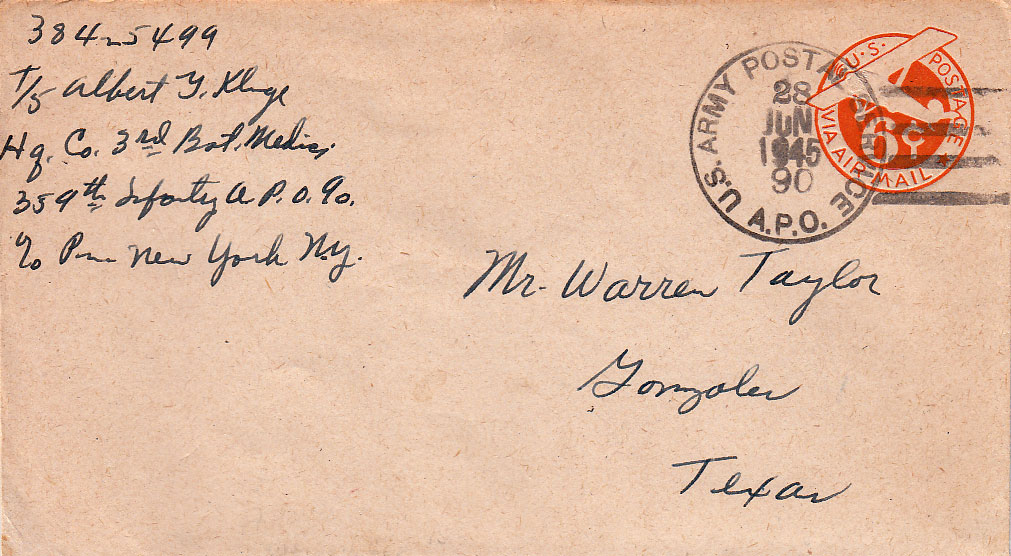 384-5499
T/5 Albert Y. Kluge
Hq. Co. 3rd Bat. Medics.
359th Infantry A.P.O. 90.
c/o P.M. New York N.Y.
U.S. ARMY POSTAL SERVICE
28
JUN
1945
90
A.P.O.
U.S. POSTAGE
6¢
VIA AIR MAIL
Mr. Warren Taylor
Gonzales
Texas